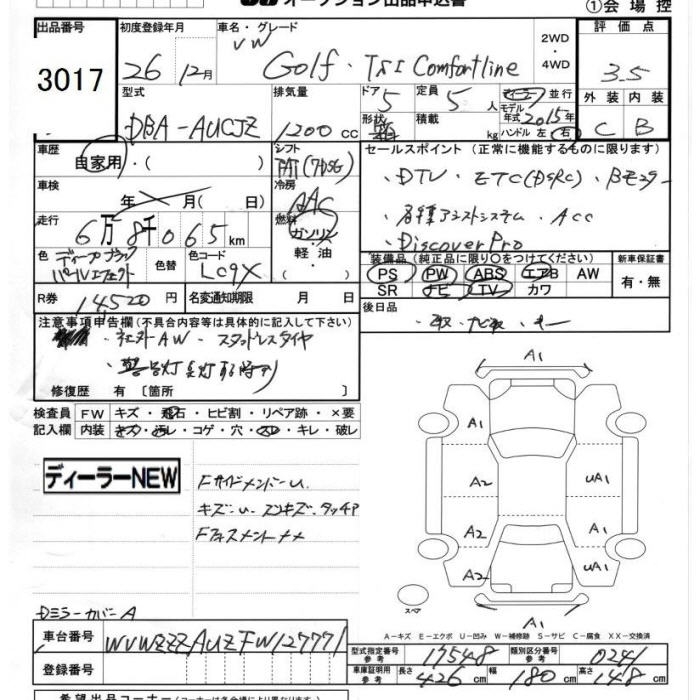 オークション出品申込書
①会場控
出品番号
3017
初度登録年月
26 年 12月
車名・グレード
VW
Golf・TSI Comfortline
2WD
・
4WD
評価点
3.5
外装 内装
C B
型式
DBA-AUCJZ
排気量
1200 cc
ドア
5
形状
定員
5 人
積載
kg
並行
モデル
年式 2015年
ハンドル 左 右
車歴
自家用・( )
シフト
FAT(7DSG)
車検
年 月( 日)
冷房
AAC
走行
6万8千065km
燃料
ガソリン
軽油
・
色
ディープブラック
パールエフェクト
色替
色コード
LC9X
R券
14520 円
名変通知期限 月 日
セールスポイント (正常に機能するものに限ります)
・DTV ・ETC(DSRC) ・Bモニター
・各種アシストシステム ・ACC
・Discover Pro
装備品 (純正品に限り〇をつけてください)
PS PW ABS エアB AW
SR ナビ TV カワ
新車保証書
有・無
後日品
・取・ナビ取・キー
注意事項申告欄 (不具合内容等は具体的に記入して下さい)
・社外AW ・スタッドレスタイヤ
修復歴 有 〔箇所 〕
検査員 FW キズ・飛石・ヒビ割・リペア跡・×要
記入欄 内装 キズ・汚レ・コゲ・穴・スレ・キレ・破レ
ディーラーNEW
FサイドメンバーU
キズU スンキズ・タッチP
DミラーカバーA
A1
A1
A2
UA1
A2
A1
A2
UA1
スペア
A1
A-キズ E-エクボ U-凹み W-補修跡 S-サビ C-腐食 XX-交換済
車台番号
WVWZZZAUZFW127771
登録番号
型式指定番号
参考
17548
類別区分番号
参考
0241
車庫証明用
参考
長さ 426 cm 幅 180 cm 高さ 148 cm
希望出品コーナー